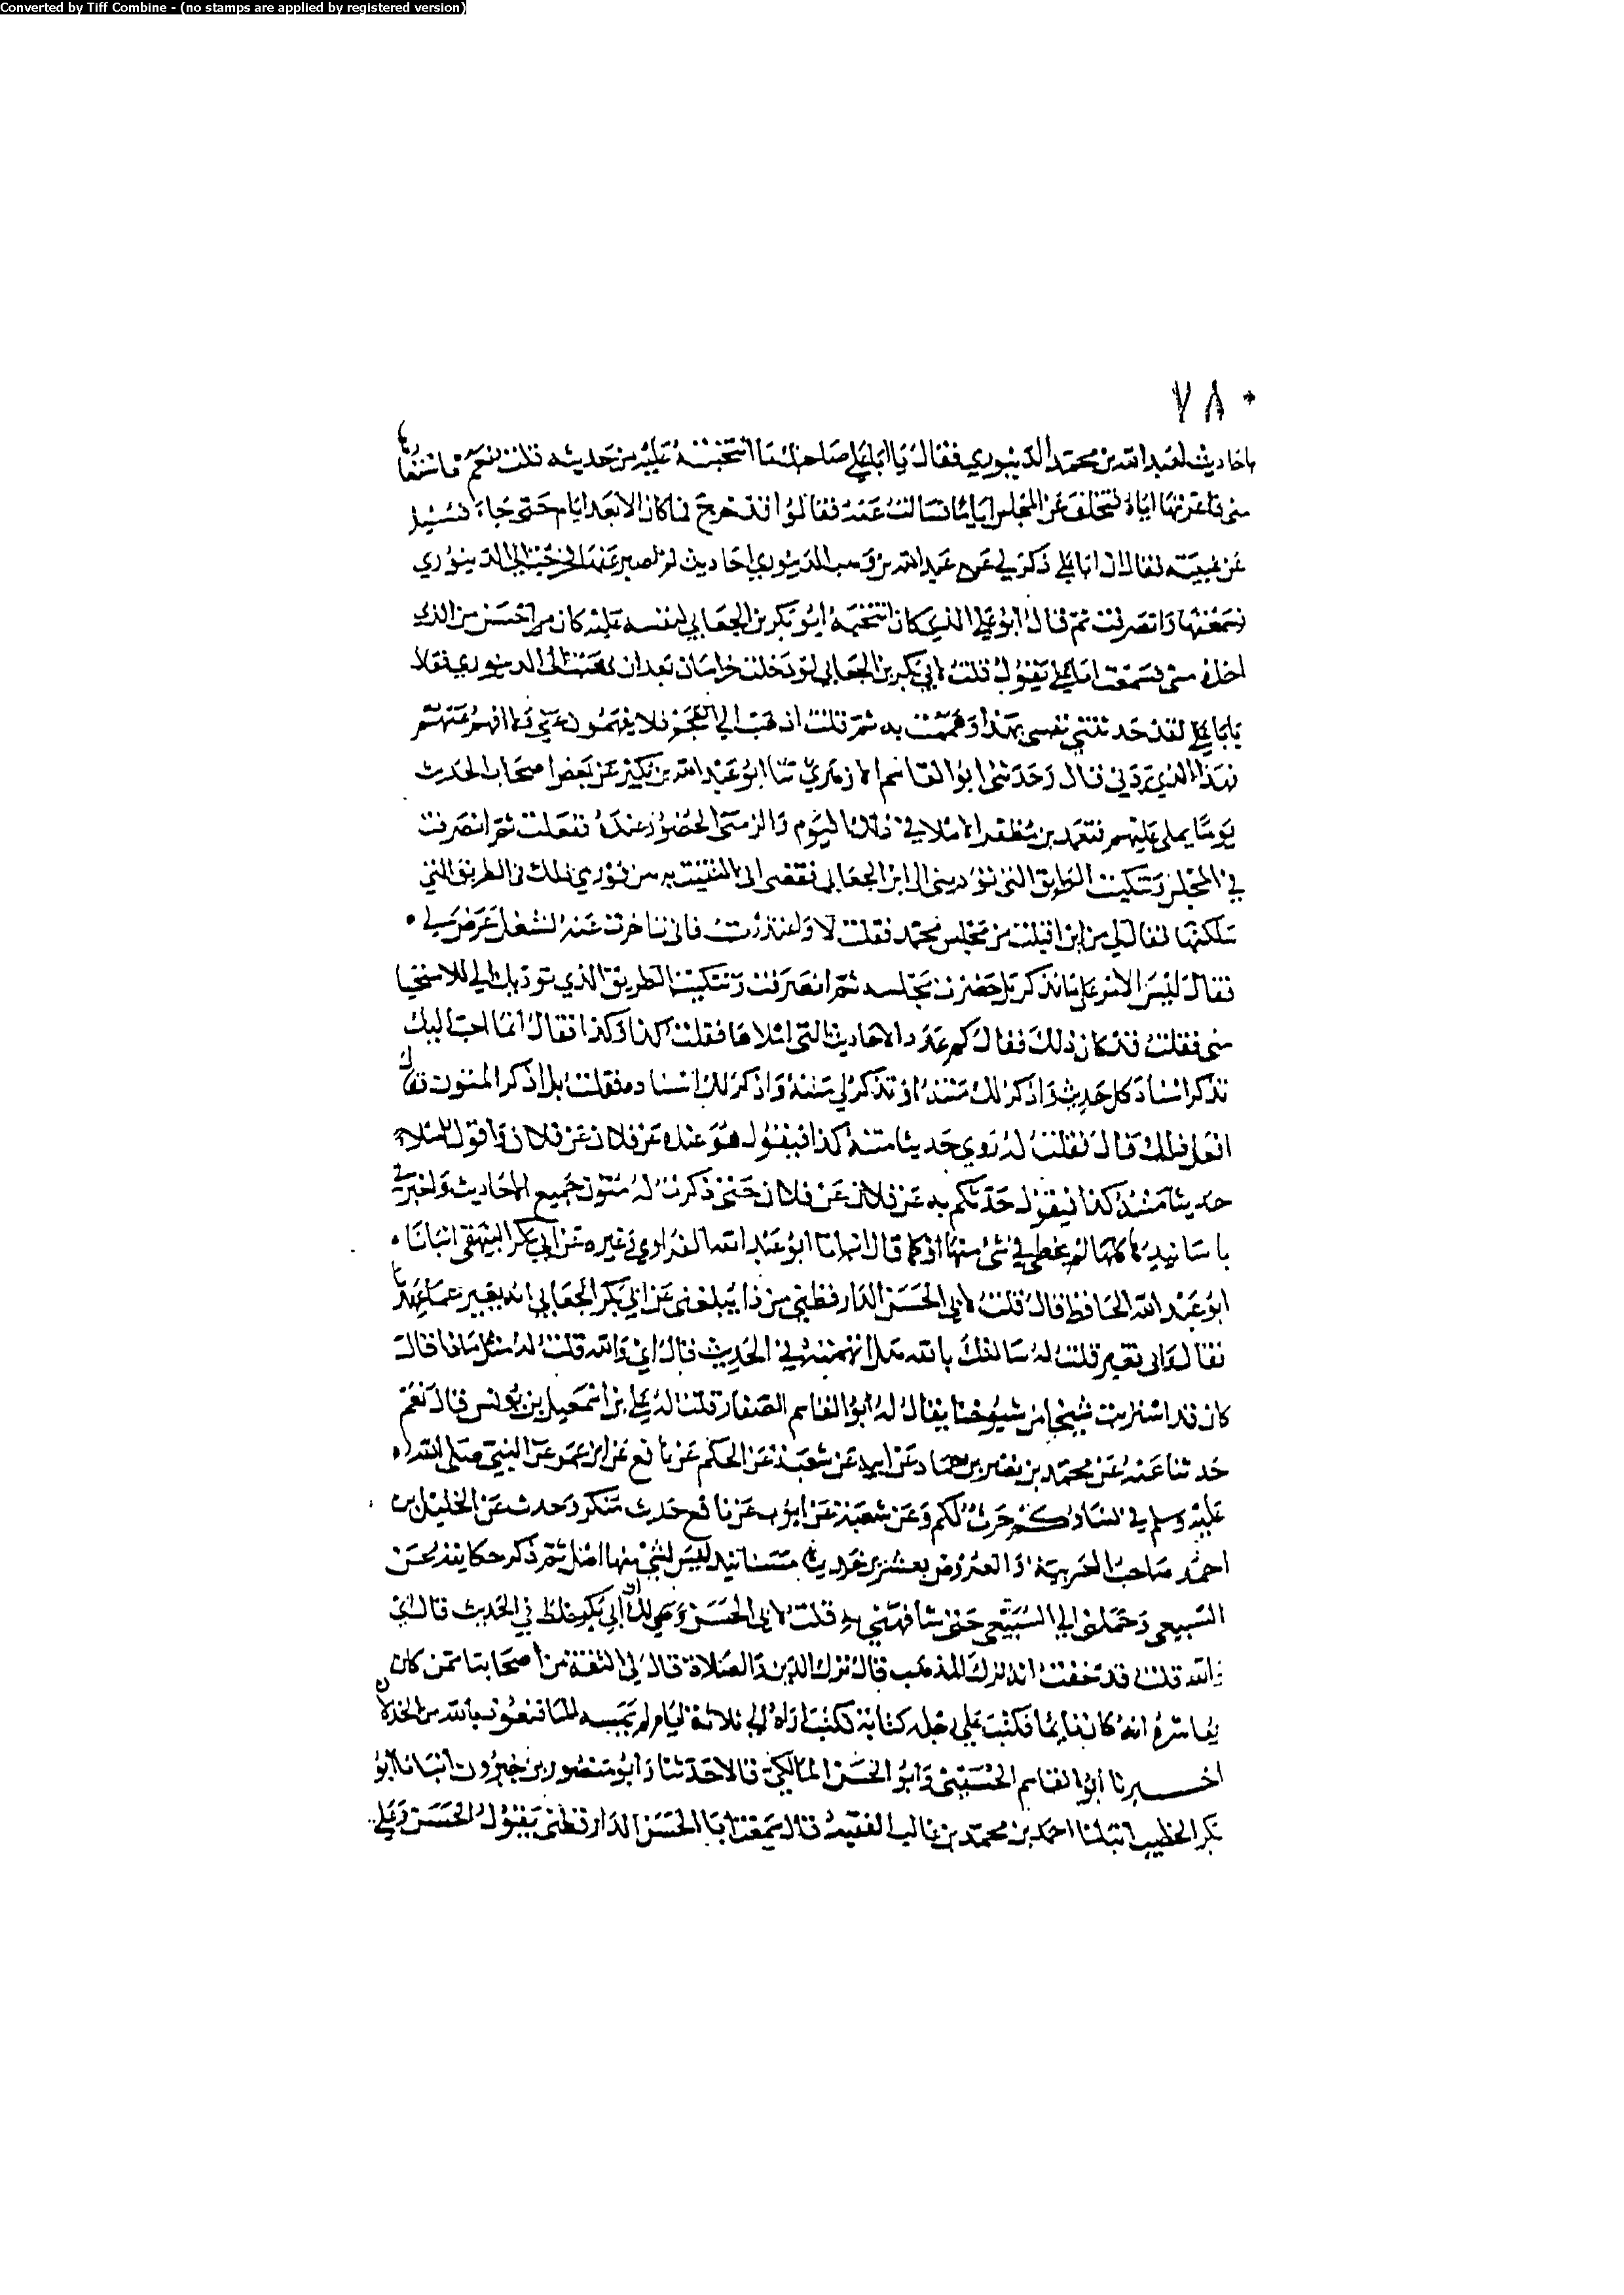 Converted by Tiff Combine - (no stamps are applied by registered version)
٧٨
باحاديث لعبد الله بن محمد الدينوري فقال يا ابا علي صاحبك انتخبته عليه من حديثه قلت نعم
مني فاعرتها اياه فتخلف عن المجلس اياما فسالت عنه فقالوا قد خرج فما كان الا بعد ايام حتى جاء فسئل
عن غيبته فقال ان ابا علي ذكر لي عن عبد الله بن وهب الدينوري احاديث لم اصبر عنها فخرجت الى الدينوري
فسمعتها وانصرفت ثم قال ابو علي الذي كان انتخبه ابو بكر بن الجعابي لنفسه عليه كان احسن من الذي
اخذه مني فسمعت ابا علي يقول قلت لابي بكر بن الجعابي لو دخلت خراسان بعد ان الى الدينوري فقال
يابا علي لقد حدثتني نفسي بهذا وهممت به ثم قلت اذهب الى العجم فلا يفهمون عني ولا افهم عنهم
فهذا الذي ردني قال وحدثني ابو القاسم الازهري ثنا ابو عبد الله بن بكير عن بعض اصحاب الحديث
يوما يملي عليهم فتعمد ابن مظفر الاملا في ذلك اليوم والزمني الحضور عنده ففعلت ثم انصرفت
في المجلس وتنكبت الطريق التي تؤديني الى ابن الجعابي في الطريق التي
سلكتها فقال لي من اين اقبلت من مجلس محمد فقلت لا فاني تاخرت عنه لشغل عرض لي
فقال ليس الامر على ما تذكر بل حضرت مجلسه ثم انصرفت وتنكبت الطريق الذي تؤديك الي للاستحيا
مني فقلت قد كان ذلك فقال كم عدد الاحاديث التي املاها فقلت كذا وكذا فقال ايما احب اليك
تذكر اسناد كل حديث واذكر لك متنه او تذكر لي متنه واذكر لك اسناده فقلت بل اذكر المتون فقال
افعل ذلك قال فقلت له روي حديثا متنه كذا فيقول هو عنده عن فلان عن فلان واقول املا
حديثا متنه كذا فيقول حدثكم به عن فلان عن فلان حتى ذكرت له متون جميع الاحاديث واخبرني
باسانيدها كلها لم يخطئ في شئ منها او كما قال انبانا ابو عبد الله الفراوي وغيره عن ابي بكر البيهقي انبانا
ابو عبد الله الحافظ قال قلت لابي الحسن الدارقطني من ذا يبلغني عن ابي بكر الجعابي انه تغير عما عهدنا
فقال واي تغير قلت له سالتك بالله هل اتهمته في الحديث قال اي والله قلت له مثل ماذا قال
كان قد اشتريت شيخا من شيوخنا يقال له ابو القاسم الصفار قلت له علي بن اسمعيل بن يونس قال نعم
حدثنا عنه عن محمد بن نصر بن حماد عن ابيه عن شعبة عن الحكم عن نافع عن ابن عمر عن النبي صلى الله
عليه وسلم في نساؤكم حرث لكم وعن شعبة عن ايوب عن نافع حديث منكر وحدث عن الخليل بن
احمد صاحب العربية والعروض بعشرين حديثا مسانيد ليس لشئ منها اصل ثم ذكر حكاية
السبيعي وحملني الى السبيعي حتى شافهني به قلت لابي الحسن ان ابي بكر خلط في الحديث قال اي
والله قلت قد خفت انه ترك المذهب قال ترك الدين والصلاة قال لي الثقة من اصحابنا ممن كان
يعاشره انه كان نايما فكتبت على رجله كتابة فكنت اراه الى ثلاثة ايام لم يمسه الما فنعوذ بالله من الخذلان
اخبرنا ابو القاسم الحسيني وابو الحسن المالكي قالا حدثنا وابو منصور بن خيرون انبانا ابو
بكر الخطيب انبانا احمد بن محمد بن غالب الفقيه قال سمعت ابا الحسن الدارقطني يقول الحسن وعلي